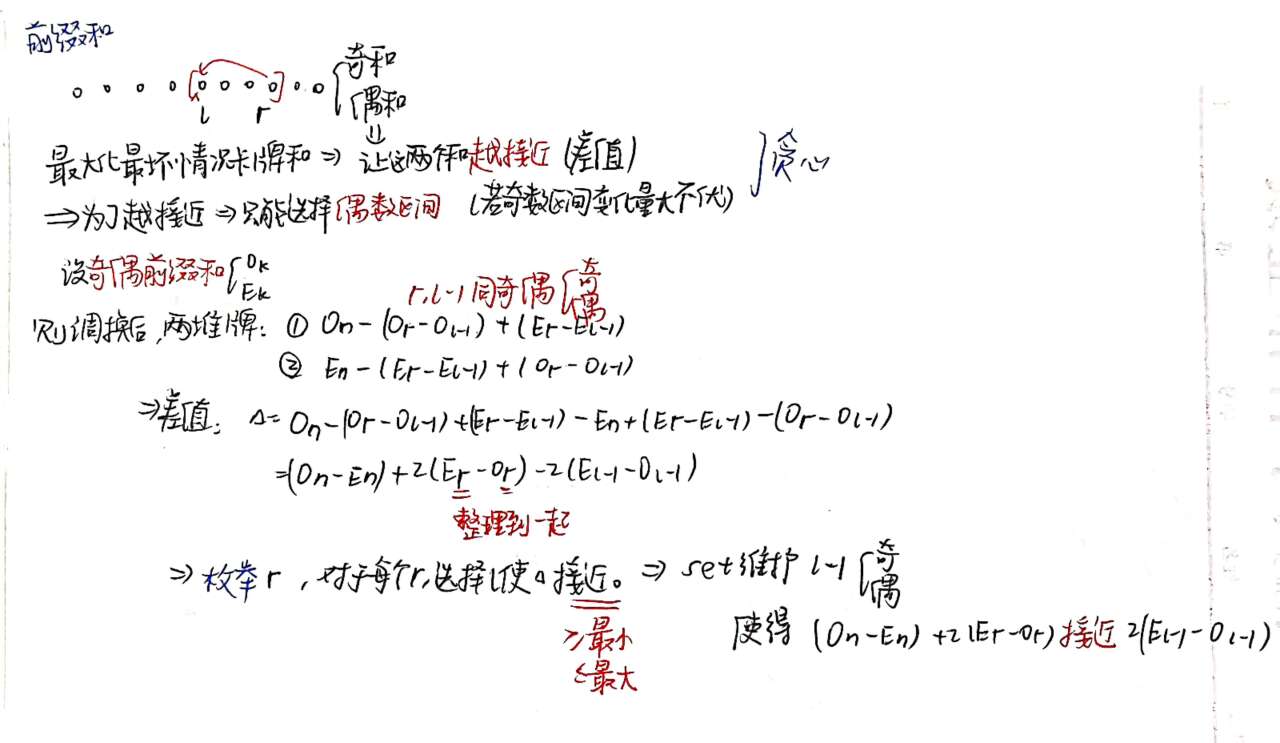 前缀和
l r
奇和
偶和
最大化最坏情况卡牌和 ⇒ 让这两个和越接近 (差值)
⇒ 为了越接近 ⇒ 只能选择偶数区间 (若奇数区间变化量大不优)
贪心
设奇偶前缀和 { Ok
Ek
r, l-1 同奇偶 { 奇
偶
则调换后, 两堆牌: ① On - (Or - Ol-1) + (Er - El-1)
② En - (Er - El-1) + (Or - Ol-1)
⇒ 差值: Δ = On - (Or - Ol-1) + (Er - El-1) - En + (Er - El-1) - (Or - Ol-1)
= (On - En) + 2(Er - Or) - 2(El-1 - Ol-1)
整理到一起
⇒ 枚举 r , 对于每个r, 选择l使Δ接近。 ⇒ set维护 l-1 { 奇
偶
≥最小
≤最大
使得 (On - En) + 2(Er - Or) 接近 2(El-1 - Ol-1)